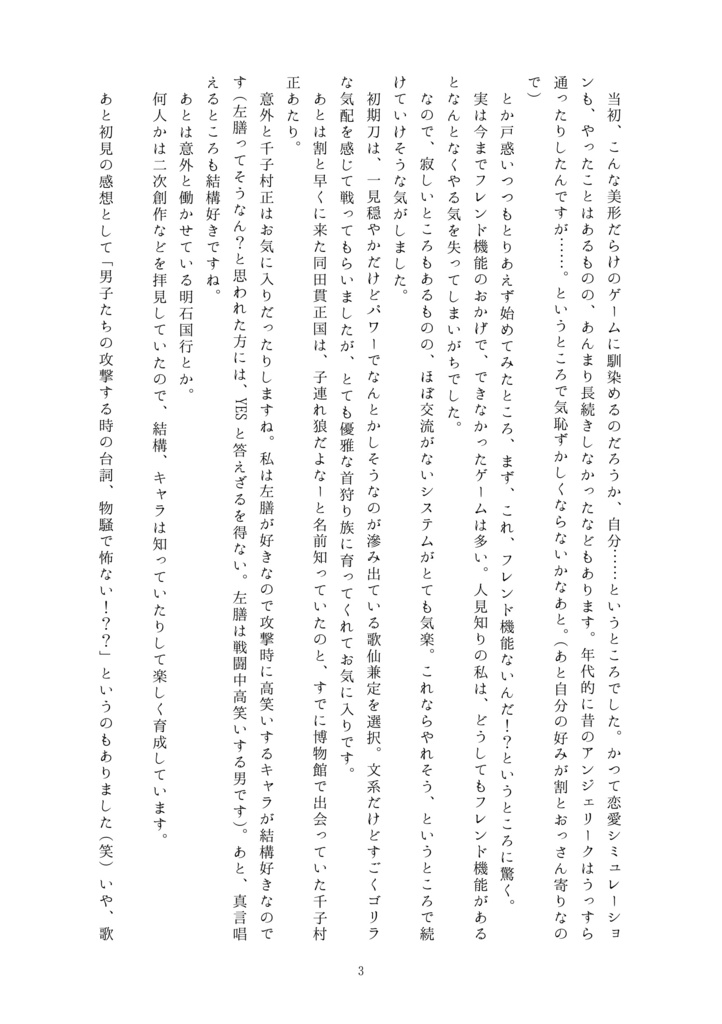 当初、こんな美形だらけのゲームに馴染めるのだろうか、自分……というところでした。かつて恋愛シミュレーショ
ンも、やったことはあるものの、あんまり長続きしなかったなどもあります。年代的に昔のアンジェリークはうっすら
通ったりしたんですが……。というところで気恥ずかしくならないかなあと。（あと自分の好みが割とおっさん寄りなの
で）
とか戸惑いつつもとりあえず始めてみたところ、まず、これ、フレンド機能ないんだ！？というところに驚く。
実は今までフレンド機能のおかげで、できなかったゲームは多い。人見知りの私は、どうしてもフレンド機能がある
となんとなくやる気を失ってしまいがちでした。
なので、寂しいところもあるものの、ほぼ交流がないシステムがとても気楽。これならやれそう、というところで続
けていけそうな気がしました。
初期刀は、一見穏やかだけどパワーでなんとかしそうなのが滲み出ている歌仙兼定を選択。文系だけどすごくゴリラ
な気配を感じて戦ってもらいましたが、とても優雅な首狩り族に育ってくれてお気に入りです。
あとは割と早くに来た同田貫正国は、子連れ狼だよなーと名前知っていたのと、すでに博物館で出会っていた千子村
正あたり。
意外と千子村正はお気に入りだったりしますね。私は左膳が好きなので攻撃時に高笑いするキャラが結構好きなので
す（左膳ってそうなん？と思われた方には、YESと答えざるを得ない。左膳は戦闘中高笑いする男です）。あと、真言唱
えるところも結構好きですね。
あとは意外と働かせている明石国行とか。
何人かは二次創作などを拝見していたので、結構、キャラは知っていたりして楽しく育成しています。
あと初見の感想として「男子たちの攻撃する時の台詞、物騒で怖ない！？？」というのもありました（笑）いや、歌
3